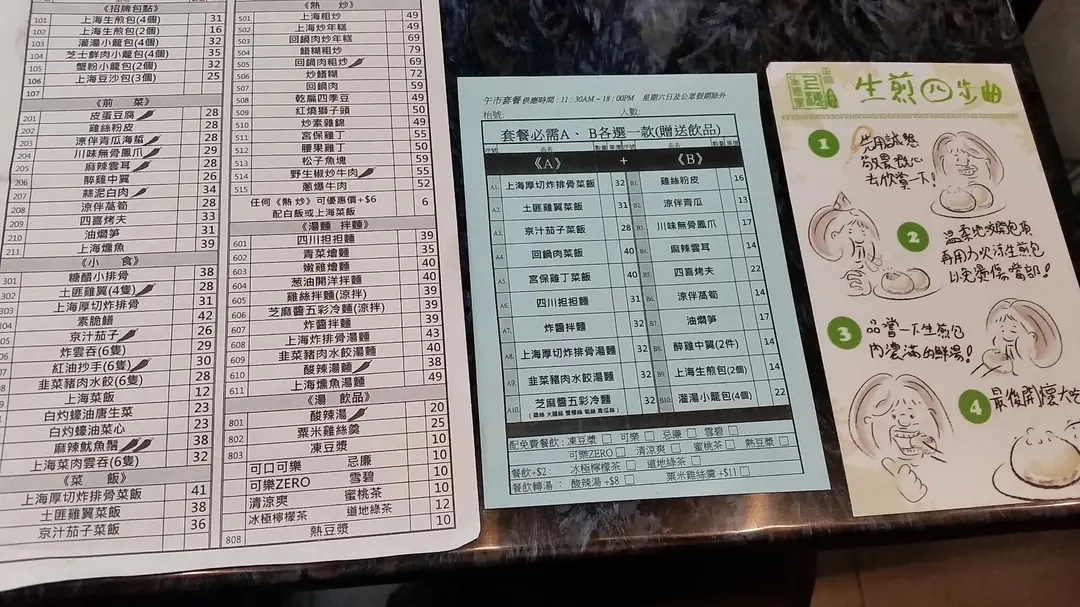 《招牌包點》
101 上海生煎包(4個) 31
102 上海生煎包(2個) 16
103 灌湯小籠包(4個) 32
104 芝士鮮肉小籠包(4個) 35
105 蟹粉小籠包(2個) 32
106 上海豆沙包(3個) 25
107
《前 菜》
201 皮蛋豆腐 28
202 雞絲粉皮 28
203 涼伴青瓜海蜇 28
204 川味無骨鳳爪 29
205 麻辣雲耳 28
206 醉雞中翼 26
207 蒜泥白肉 34
208 涼伴萵筍 28
209 四喜烤夫 33
210 油燜筍 31
211 上海燻魚 39
《小 食》
301 糖醋小排骨 38
302 土匪雞翼(4隻) 28
上海厚切炸排骨 31
304 素脆鱔 42
京汁茄子 26
炸雲吞(6隻) 29
紅油抄手(6隻) 30
韭菜豬肉水餃(6隻) 28
上海菜飯 12
白灼蠔油唐生菜 23
白灼蠔油菜心 23
麻辣魷魚鬚 38
上海菜肉雲吞(6隻) 32
《菜 飯》
上海厚切炸排骨菜飯 41
土匪雞翼菜飯 38
京汁茄子菜飯 36
《熱 炒》
501 上海粗炒 49
502 上海炒年糕 49
503 回鍋肉炒年糕 69
504 鱔糊粗炒 79
505 回鍋肉粗炒 69
506 炒鱔糊 72
507 回鍋肉 59
508 乾扁四季豆 49
509 紅燒獅子頭 50
510 炒素雞錦 49
511 宮保雞丁 55
512 腰果雞丁 50
513 松子魚塊 59
514 野生椒炒牛肉 55
515 蔥爆牛肉 52
任何《熱炒》可優惠價+$6 6
配白飯或上海菜飯
《湯麵 拌麵》
601 四川担担麵 39
602 青菜燴麵 35
603 嫩雞燴麵 40
604 葱油開洋拌麵 40
605 雞絲拌麵(涼拌) 39
606 芝麻醬五彩冷麵(涼拌) 40
607 炸醬拌麵 39
608 上海厚切炸排骨湯麵 43
609 韭菜豬肉水餃湯麵 39
610 酸辣湯麵 38
611 上海燻魚湯麵 49
《湯 飲品》
801 酸辣湯 20
802 粟米雞絲羹 25
803 凍豆漿 10
可口可樂 忌廉 10
可樂ZERO 雪碧 10
清涼爽 蜜桃茶 10
冰極檸檬茶 道地綠茶 12
808 熱豆漿 10
午市套餐 供應時間:11:30AM~18:00PM 星期六日及公眾假期除外
枱號: 人數:
套餐必需A、B各選一款(贈送飲品)
序號 品名 數量 單價 序號 品名 數量 單價
《A》 + 《B》
A1. 上海厚切炸排骨菜飯 32 B1. 雞絲粉皮 16
A2. 土匪雞翼菜飯 31 B2. 涼伴青瓜 13
A3. 京汁茄子菜飯 28 B3. 川味無骨鳳爪 17
A4. 回鍋肉菜飯 40 B4. 麻辣雲耳 14
A5. 宮保雞丁菜飯 40 B5. 四喜烤夫 22
A6. 四川担担麵 31 B6. 涼伴萵筍 14
A7. 炸醬拌麵 32 B7. 油燜筍 17
A8. 上海厚切炸排骨湯麵 32 B8. 醉雞中翼(2件) 14
A9. 韭菜豬肉水餃湯麵 32 B9. 上海生煎包(2個) 14
A10. 芝麻醬五彩冷麵 32 B10. 灌湯小籠包(4個) 22
配免費餐飲: 凍豆漿 □ 可樂 □ 忌廉 □ 雪碧 □
可樂ZERO □ 清涼爽 □ 蜜桃茶 □ 熱豆漿 □
餐飲+$2: 冰極檸檬茶 □ 道地綠茶 □
餐飲轉湯: 酸辣湯 +$8 □ 粟米雞絲羹 +$11 □
生煎四步曲
1
去欣賞一下!
2 溫柔地咬開包頂
再用力吹涼生煎包
以免燙傷嘴部!
3 品嘗一下生煎包
內濃滿的鮮湯!
4 最後開懷大吃